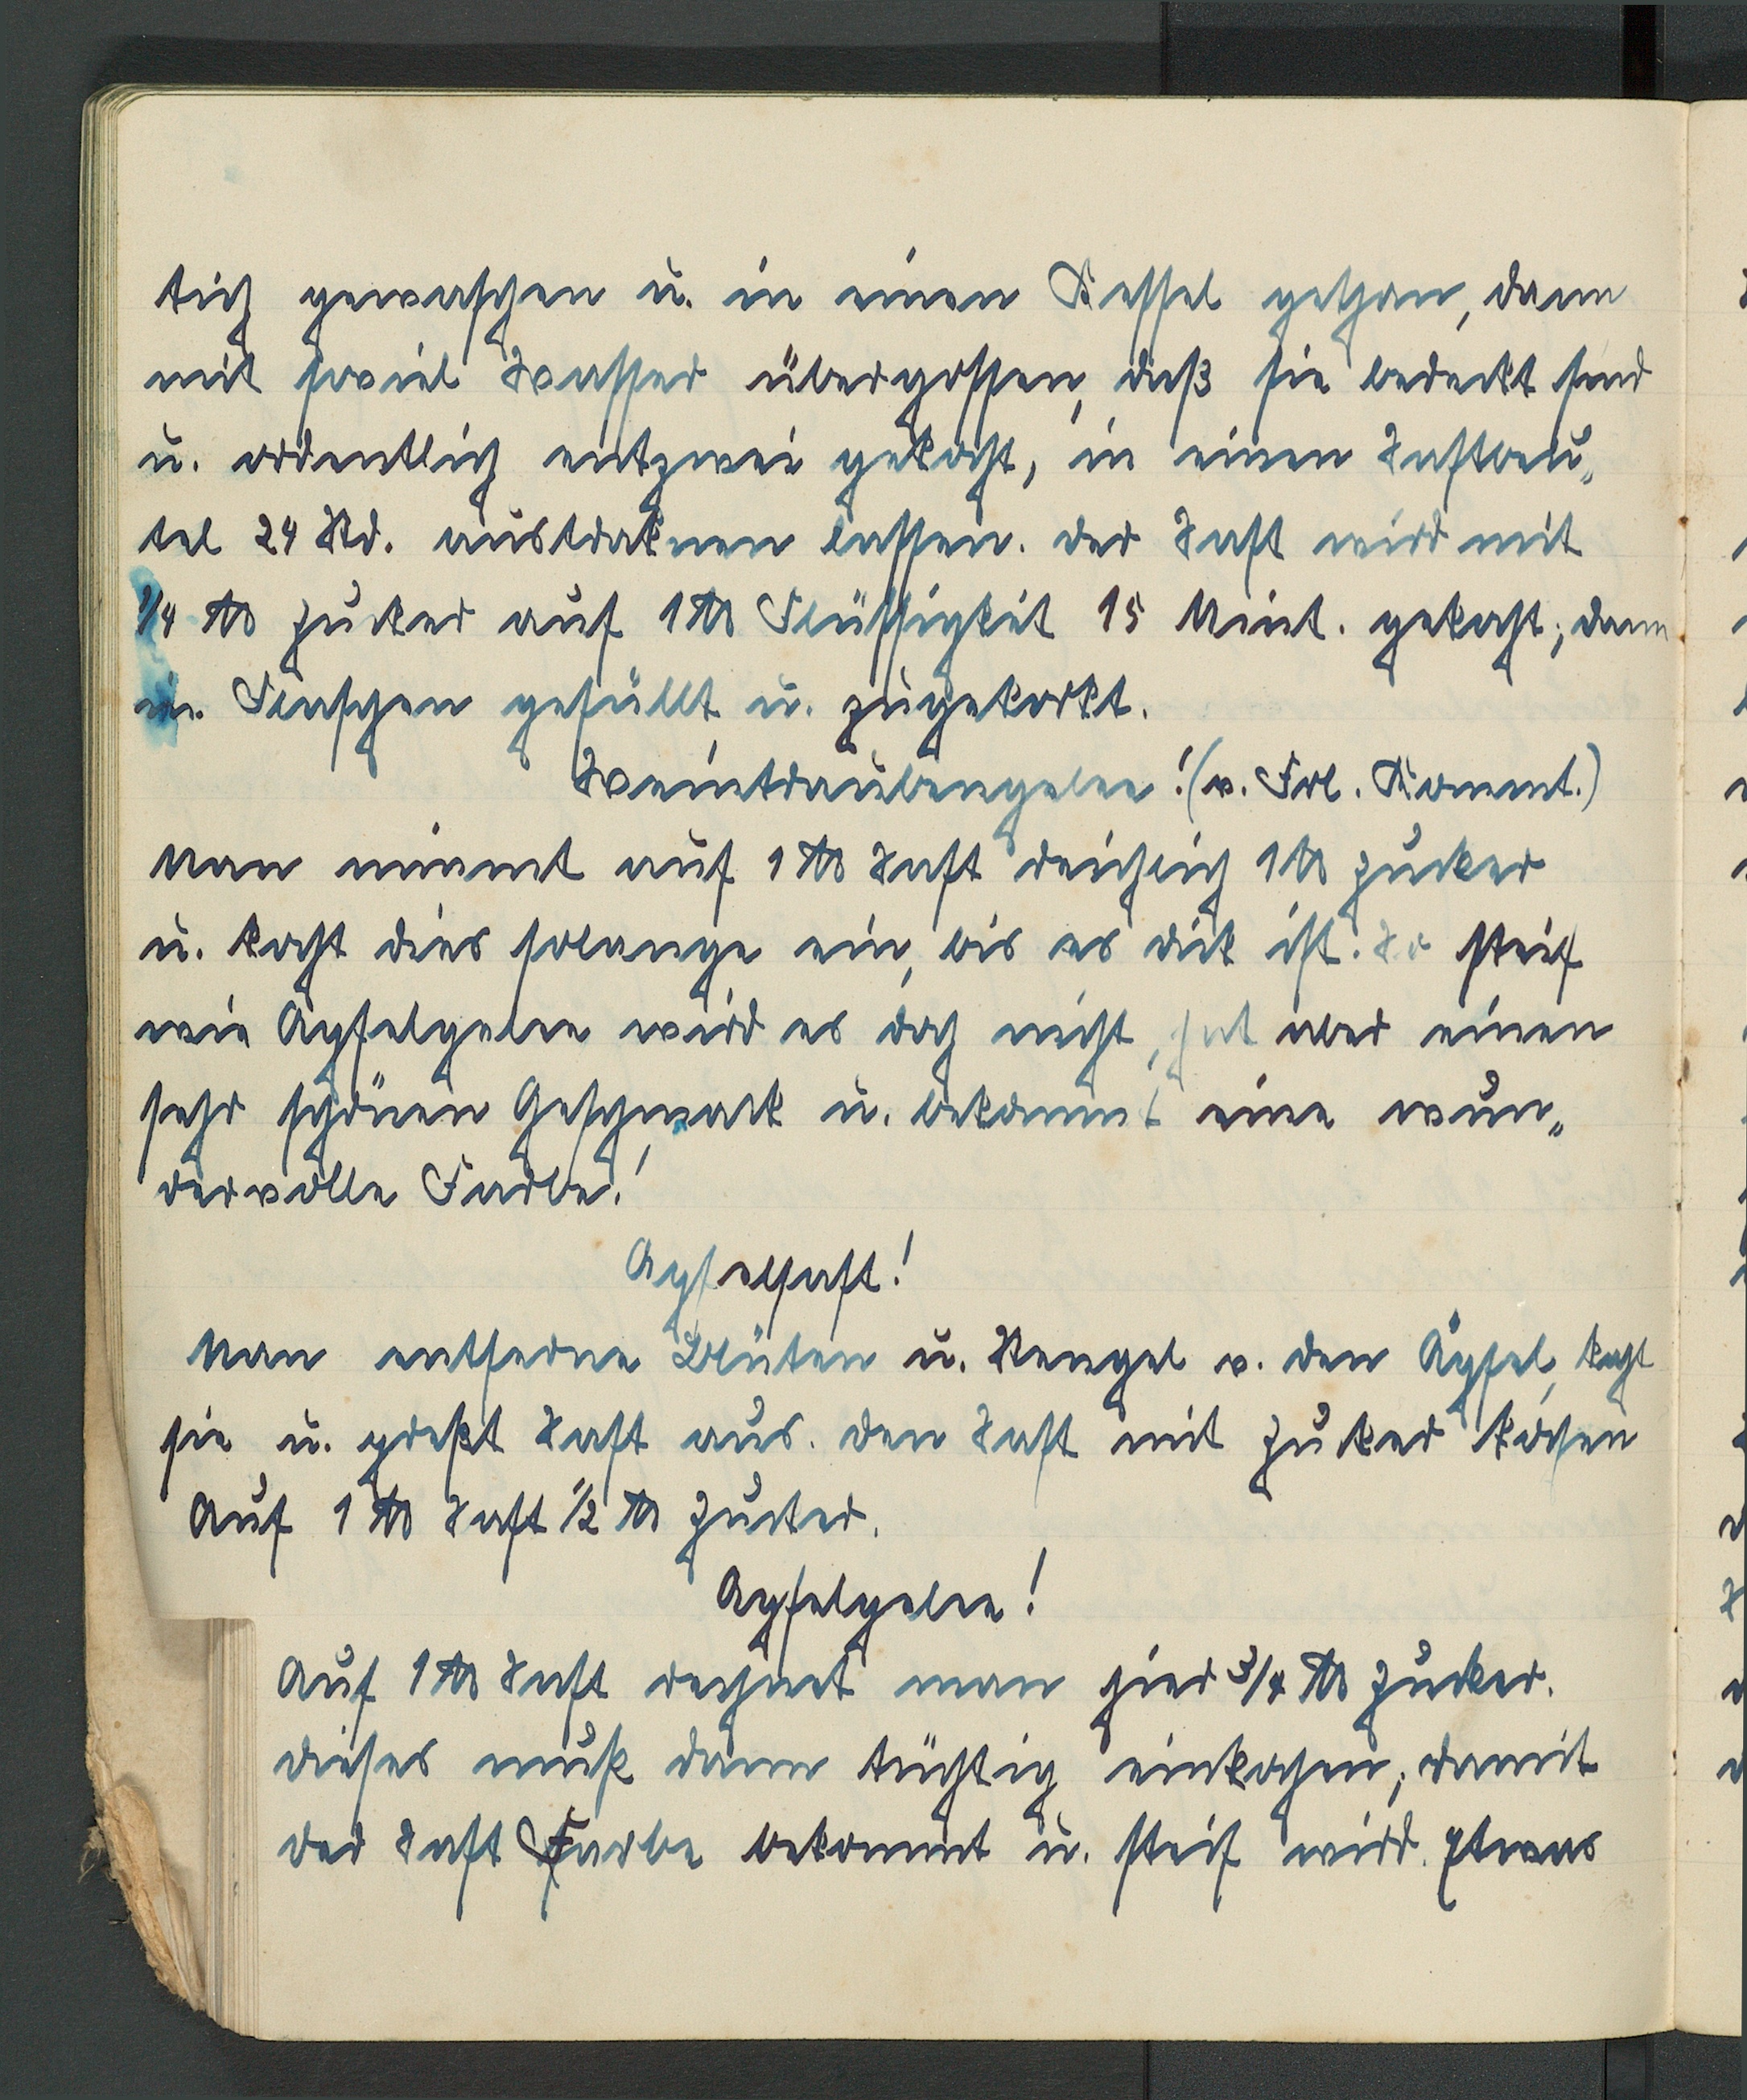 tig gewaschen u. in einen Kessel gethan, dann
mit soviel Wasser übergossen, daß sie bedeckt sind
u. ordentlich entzwei gekocht, in einen Saftbeu„
tel 24 Std. austroknen lassen. der Saft wird mit
1/4 ℔ Zucker auf 1 ℔ Flüssigkeit 15 Mint. gekocht; dann
in Flaschen gefüllt u. zugekorkt.
Weintraubengelee! (v. Frl. Konent.)
Man nimmt auf 1 ℔ Saft reichlich 1 ℔ Zucker
u. kocht dies solange ein, bis es dick ist. So steif
wie Äpfelgelee wird es doch nicht, hat aber einen
sehr schönen Geschmack u. bekommt eine wun„
dervolle Farbe!
Apfelsaft!
Man entferne Blüten u. Stengel v. den Äpfel, kocht
sie u. preßt Saft aus. den Saft mit Zucker kochen
Auf 1 ℔ Saft 1/2 ℔ Zucker.
Apfelgelee!
Auf 1 ℔ Saft rechnet man hier 3/4 ℔ Zucker.
dieses muß dann tüchtig einkochen, damit
der Saft Farbe bekommt u. steif wird. Etwas